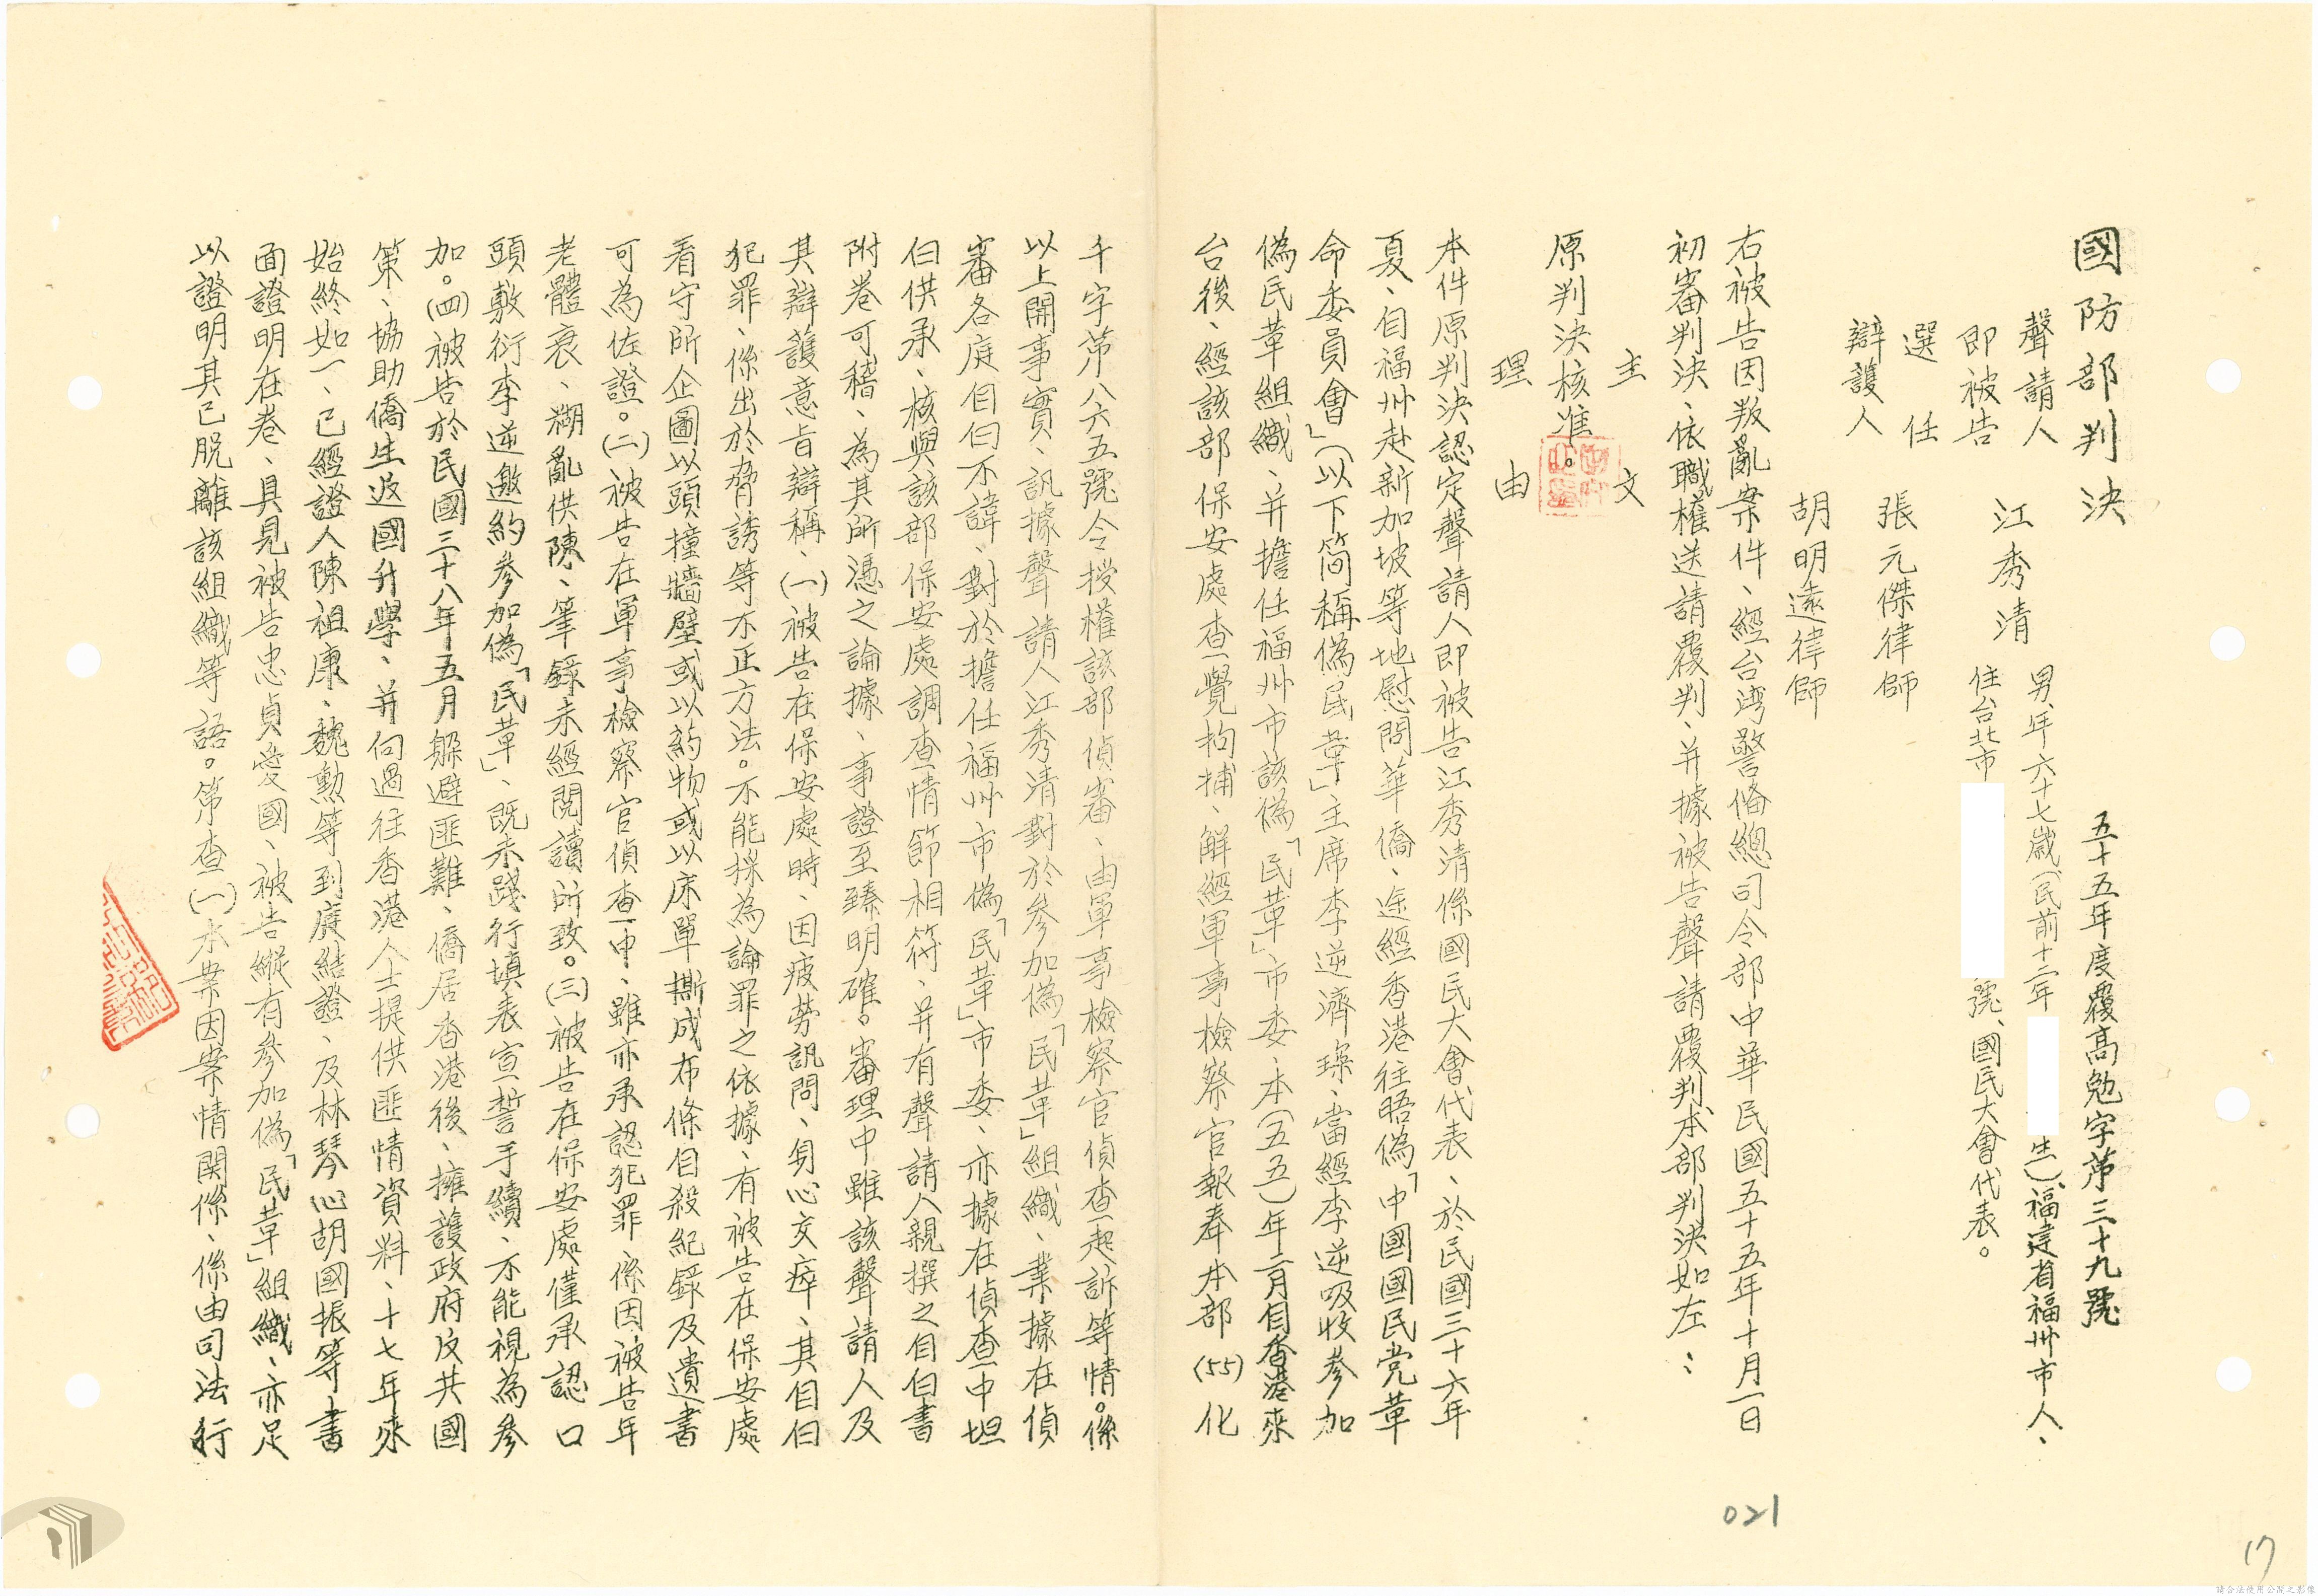 國防部判決
五十五年度覆高勉字第三十九號
聲請人
即被告
江秀清
男、年六十七歲（民前十二年
生）、福建省福州市人、
住台北市
號、國民大會代表。
選任
辯護人
張元傑律師
胡明遠律師
右被告因叛亂案件、經台湾警俻總司令部中華民國五十五年十月一日
初審判決、依職權送請覆判、并據被告聲請覆判、本部判決如左：
主文
原判決核准。
理由
本件原判決認定聲請人即被告江秀清係國民大會代表、於民國三十六年
夏、自福州赴新加坡等地慰問華僑、途經香港往晤偽「中國國民党革
命委員會」（以下简稱偽「民革」）主席李逆濟琛、當經李逆吸收參加
偽民革組織、并擔任福州市該偽「民革」市委、本（五五）年二月自香港來
台後、經該部保安處查覺拘捕、解經軍事檢察官報奉本部(55)化
千字第八六五號令授權該部偵審、由軍事檢察官偵查起訴等情。係
以上開事實、訊據聲請人江秀清對於參加偽「民革」組織、業據在偵
審各庭自白不諱、對於擔任福州市偽「民革」市委、亦據在偵查中坦
白供承、核與該部保安處調查情節相符、并有聲請人親撰之自白書
附卷可稽、為其所憑之論據、事證至臻明確。審理中雖該聲請人及
其辯護意旨辯稱、(一)被告在保安處時、因疲勞訊問、身心交瘁、其自白
犯罪、係出於脅誘等不正方法。不能採為論罪之依據、有被告在保安處
看守所企圖以頭撞牆壁或以葯物或以床單撕成布條自殺紀錄及遺書
可為佐證。(二)被告在軍事檢察官偵查中、雖亦承認犯罪、係因被告年
老體衰、糊亂供陳、筆錄未經閱讀所致。(三)被告在保安處僅承認口
頭敷衍李逆邀約參加偽「民革」、既未踐行填表宣誓手續、不能視為參
加。(四)被告於民國三十八年五月躲避匪難、僑居香港後、擁護政府反共國
策、協助僑生返國升學、并向過往香港人士提供匪情資料、十七年來
始終如一、已經證人陳祖康、魏勳等到庭結證、及林琴心胡國振等書
面證明在卷、具見被告忠貞愛國、被告縱有參加偽「民革」組織、亦足
以證明其已脫離該組織等語。第查(一)本案因案情関係、係由司法行
021
17
請合法使用公開之影像